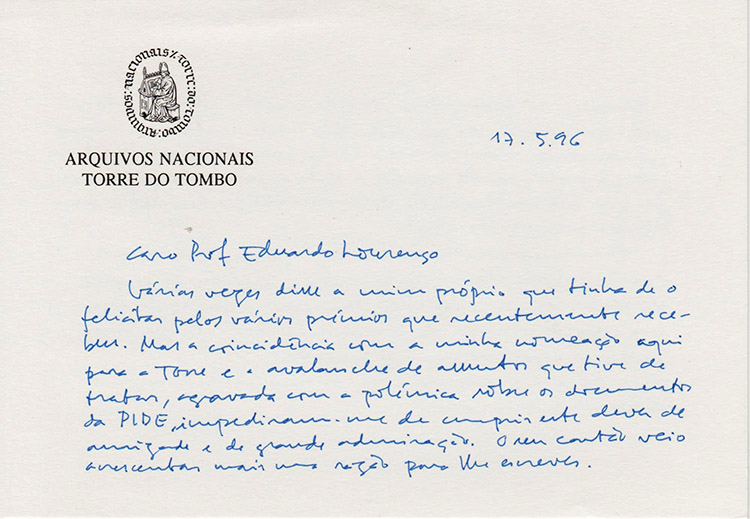 arquivos: nacionais: torre: do: tombo
ARQUIVOS NACIONAIS
TORRE DO TOMBO
17.5.96
Caro Prof Eduardo Lourenço
Várias vezes disse a mim próprio que tinha de o
felicitar pelos vários prémios que recentemente rece-
beu. Mas a coincidência com a minha nomeação aqui
para a Torre e a avalanche de assuntos que tive de
tratar, agravada com a polémica sôbre os documentos
da PIDE, impediram-me de cumprir este dever de
amizade e de grande admiração. O seu cartão veio
acrescentar mais uma razão para lhe escrever.